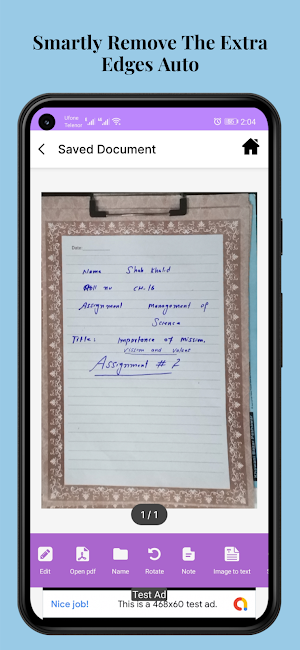 Smartly Remove The Extra
Edges Auto
Ufone
Telenor
2:04
Saved Document
Date:
Name Shah Khalid
Roll no CH-16
Assignment management of
Science
Title: Importance of mission,
vission and values
Assignment # 2
1/1
Edit Open pdf Name Rotate Note Image to text
Test Ad
Nice job! This is a 468x60 test ad.